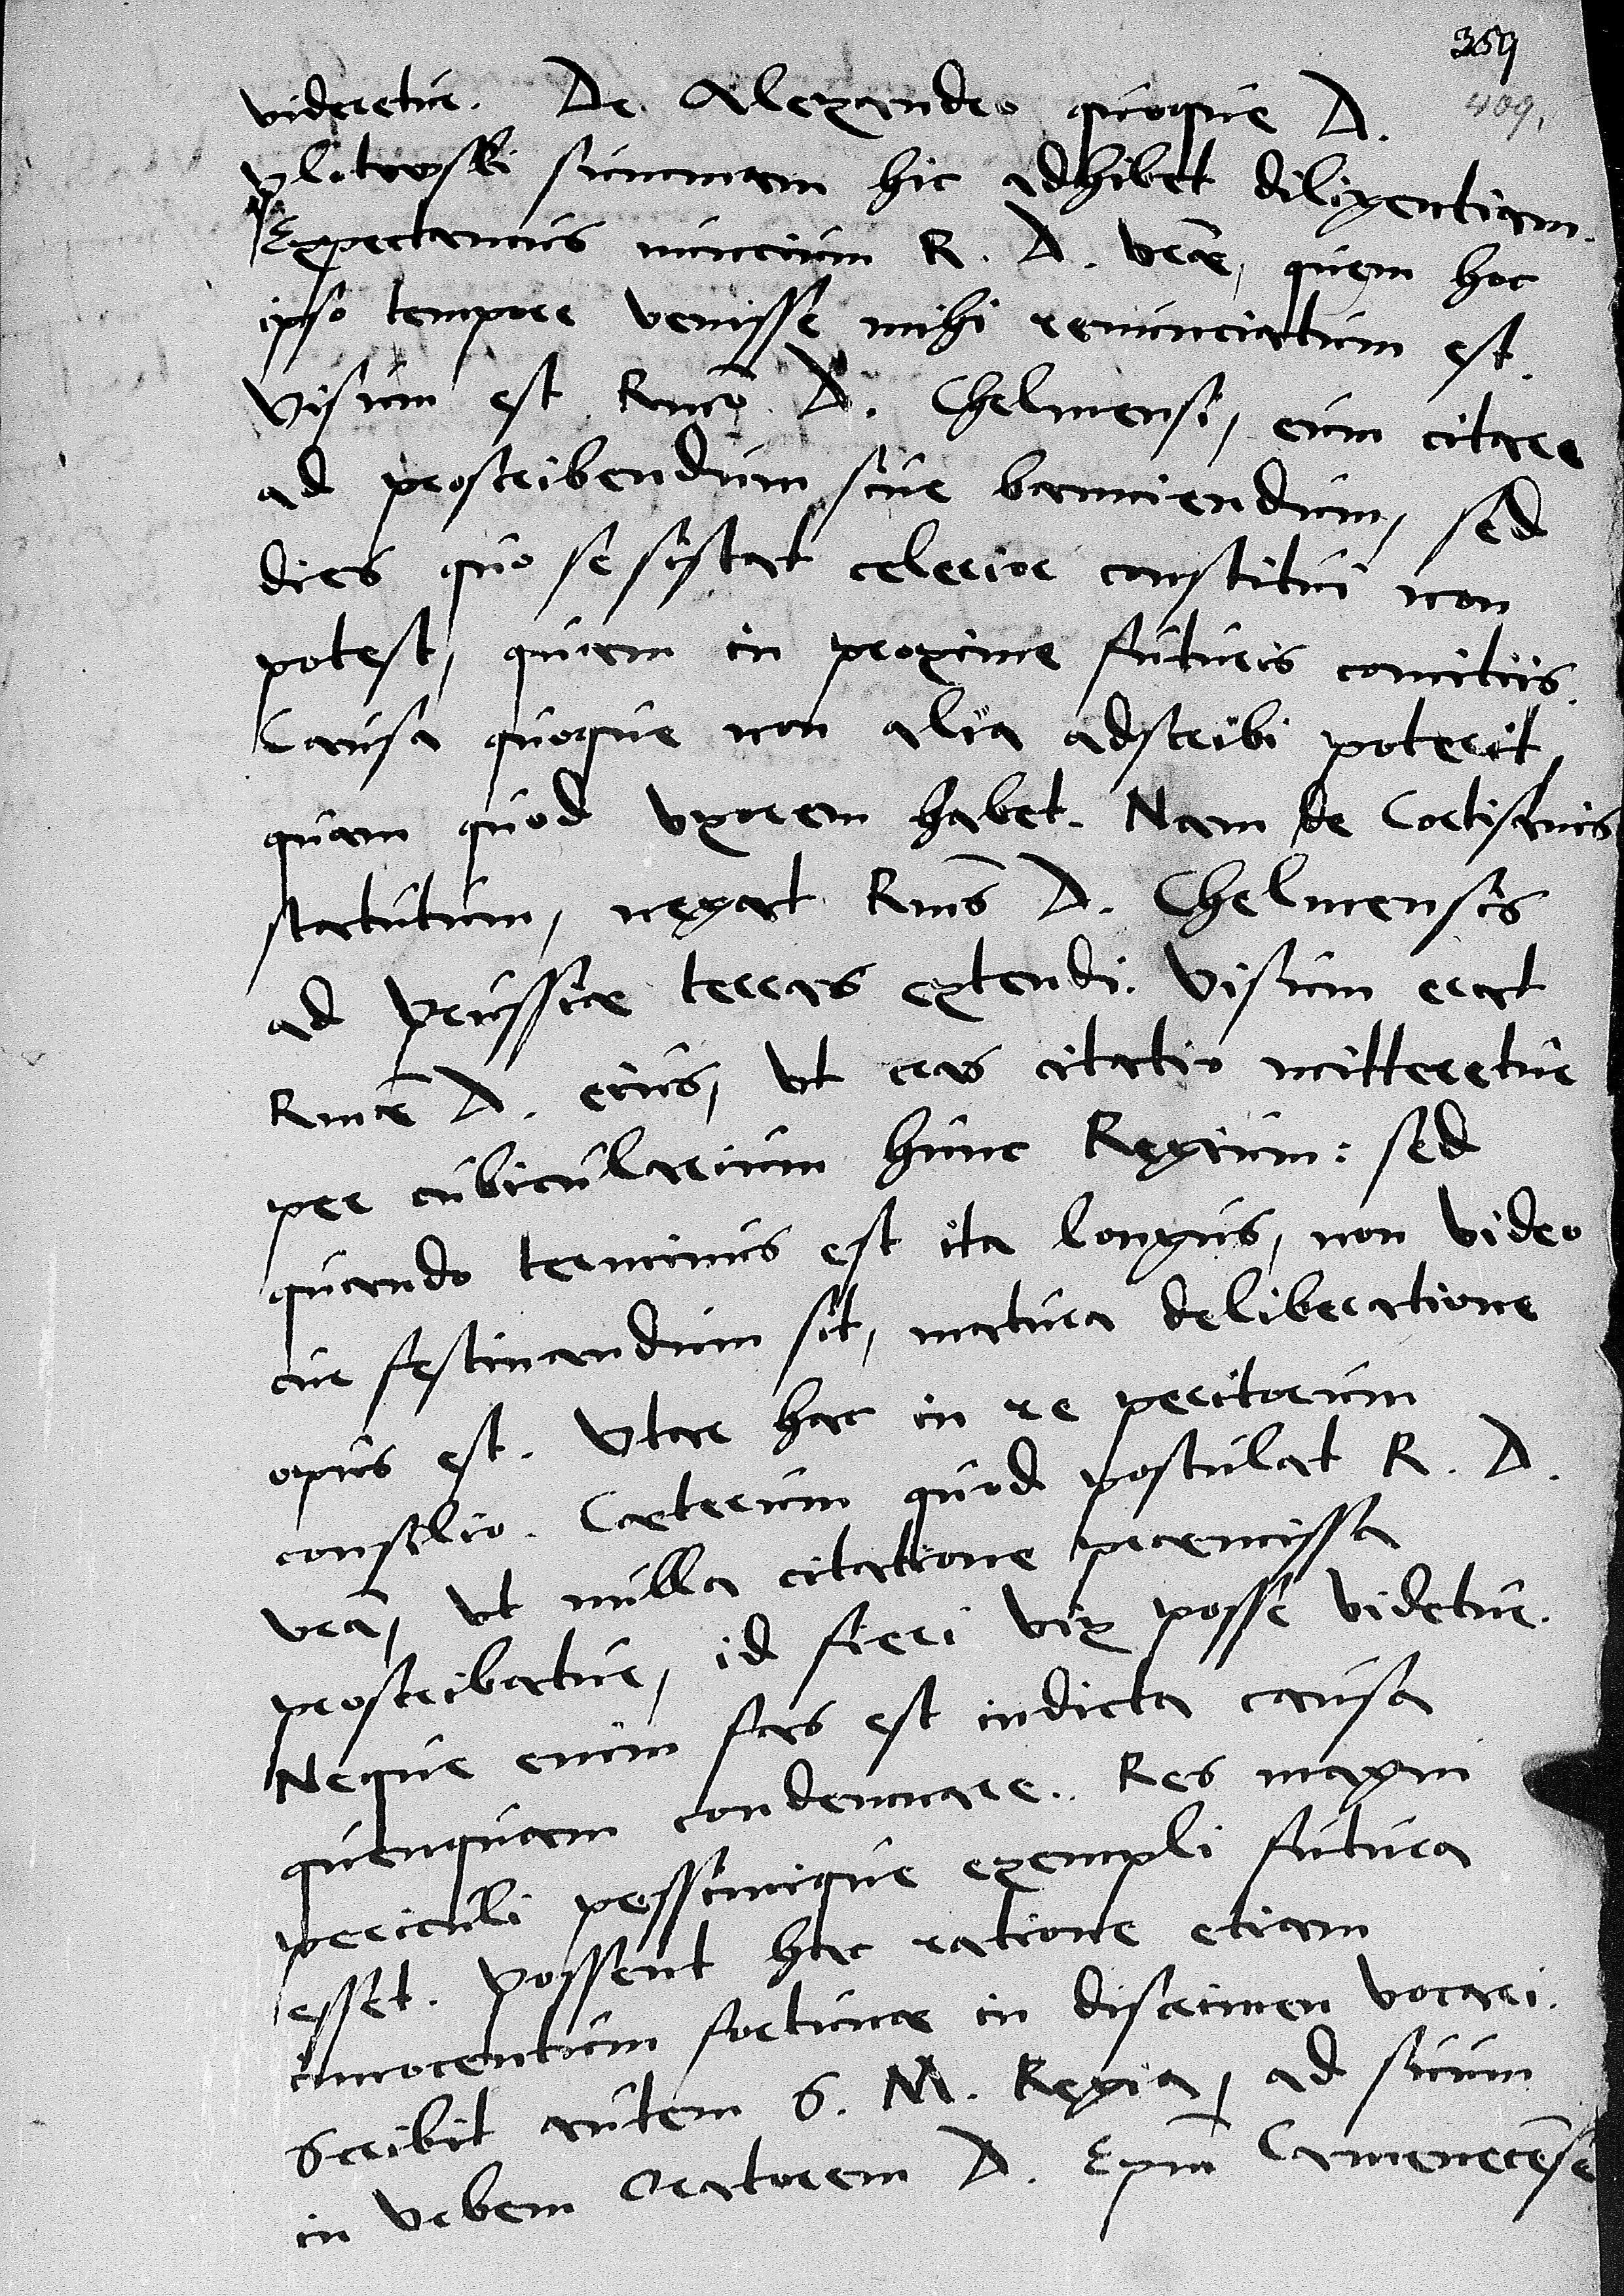 359
409.
videretur. De Alexandro quoque D.
Plotowski summam hic adhibet diligentiam.
Expectamus nuncium R. D. vrae, quem hoc
ipso tempore venisse mihi renunciatum est.
Visum est Rmo D. Chelmensi, eum citare
ad proscribendum siue banniendum, sed
dies quo se sistat celerior constitui non
potest, quam in proxime futuris comitiis.
Causa quoque non alia adscribi poterit,
quam quod vxorem habet. Nam de Cortisanis
statutum, negat Rmus D. Chelmensis
ad Prussiae terras extendi. Visum erat
Rmae D. eius, vt cras citatio mitteretur
per cubicularium hunc Regium: sed
quando terminus est ita longus, non video
cur festinandum sit, matura deliberatione
opus est. Vtar hac in re peritorum
consilio. Caeterum quod postulat R. D.
vra, vt nulla citatione praemissa
proscribatur, id fieri vix posse videtur.
Neque enim fas est indicta causa
quenquam condemnare. Res magni
periculi pessimique exempli futura
esset. Possent hac ratione etiam
innocentum fortunae in discrimen vocari.
Scribit autem S. M. Regia, ad suum
in vrbem Oratorem D. Epm Camenecense